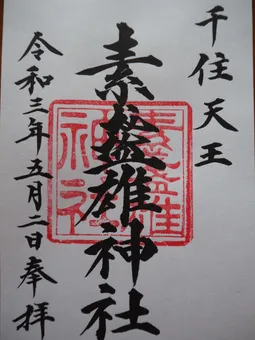 千住天王
素盞雄神社
令和三年五月二日奉拝
素盞雄
神社